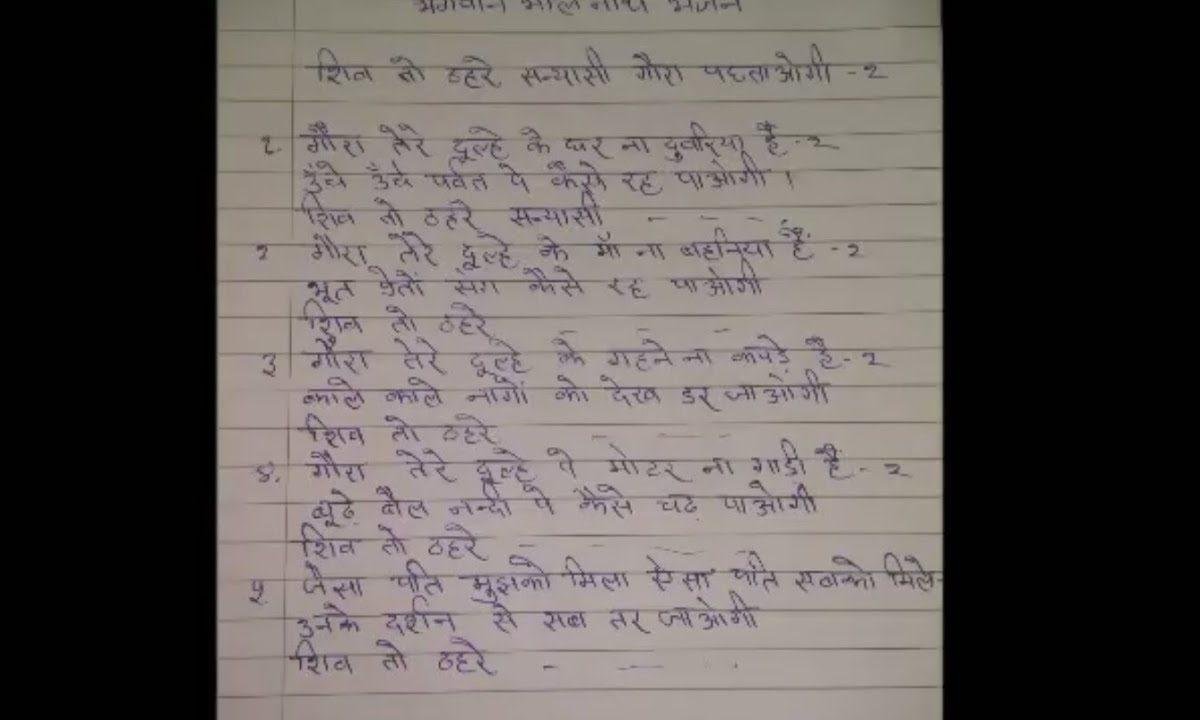 भगवान भोले नाथ भजन
शिव तो ठहरे सन्यासी गौरा पछताओगी - २
१. गौरा तेरे दूल्हे के घर ना दुवरिया है - २
ऊँचे ऊँचे पर्वत पे कैसे रह पाओगी ।
शिव तो ठहरे सन्यासी - - - -
२ गौरा तेरे दूल्हे के माँ ना बहनिया है - २
भूत प्रेतों संग कैसे रह पाओगी
शिव तो ठहरे - - - -
३ गौरा तेरे दूल्हे के गहने ना कपड़े है - २
काले काले नागों को देख डर जाओगी
शिव तो ठहरे - - - -
४. गौरा तेरे दूल्हे पे मोटर ना गाडी है - २
बूढ़े बैल नन्दी पे कैसे चढ़ पाओगी
शिव तो ठहरे - - - -
५. जैसा पति मुझको मिला ऐसा पति सबको मिले -
उनके दर्शन से सब तर जाओगी
शिव तो ठहरे - - - .